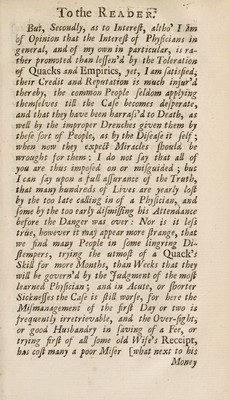 To the READER.
But, Secondly, as to Interest, altho' I am
of Opinion that the Interest of Physicians in
general, and of my own in particular, is ra-
ther promoted than lessen'd by the Toleration
of Quacks and Empirics, yet, I am satisfied,
their Credit and Reputation is much injur'd
thereby, the common People seldom applying
themselves till the Case becomes desperate,
and that they have been harrass'd to Death, as
well by the improper Drenches given them by
these sort of People, as by the Disease it self;
when now they expect Miracles should be
wrought for them: I do not say that all of
you are thus imposed on or misguided; but
I can say upon a full assurance of the Truth,
that many hundreds of Lives are yearly lost
by the too late calling in of a Physician, and
some by the too early dismissing his Attendance
before the Danger was over: Nor is it less
true, however it may appear more strange, that
we find many People in some lingring Di-
stempers, trying the utmost of a Quack's
Skill for more Months, than Weeks that they
will be govern'd by the Judgment of the most
learned Physician; and in Acute, or shorter
Sicknesses the Case is still worse, for here the
Mismanagement of the first Day or two is
frequently irretrievable, and the Over-sight,
or good Husbandry in saving of a Fee, or
trying first of all some old Wife's Receipt,
has cost many a poor Miser [what next to his
Money